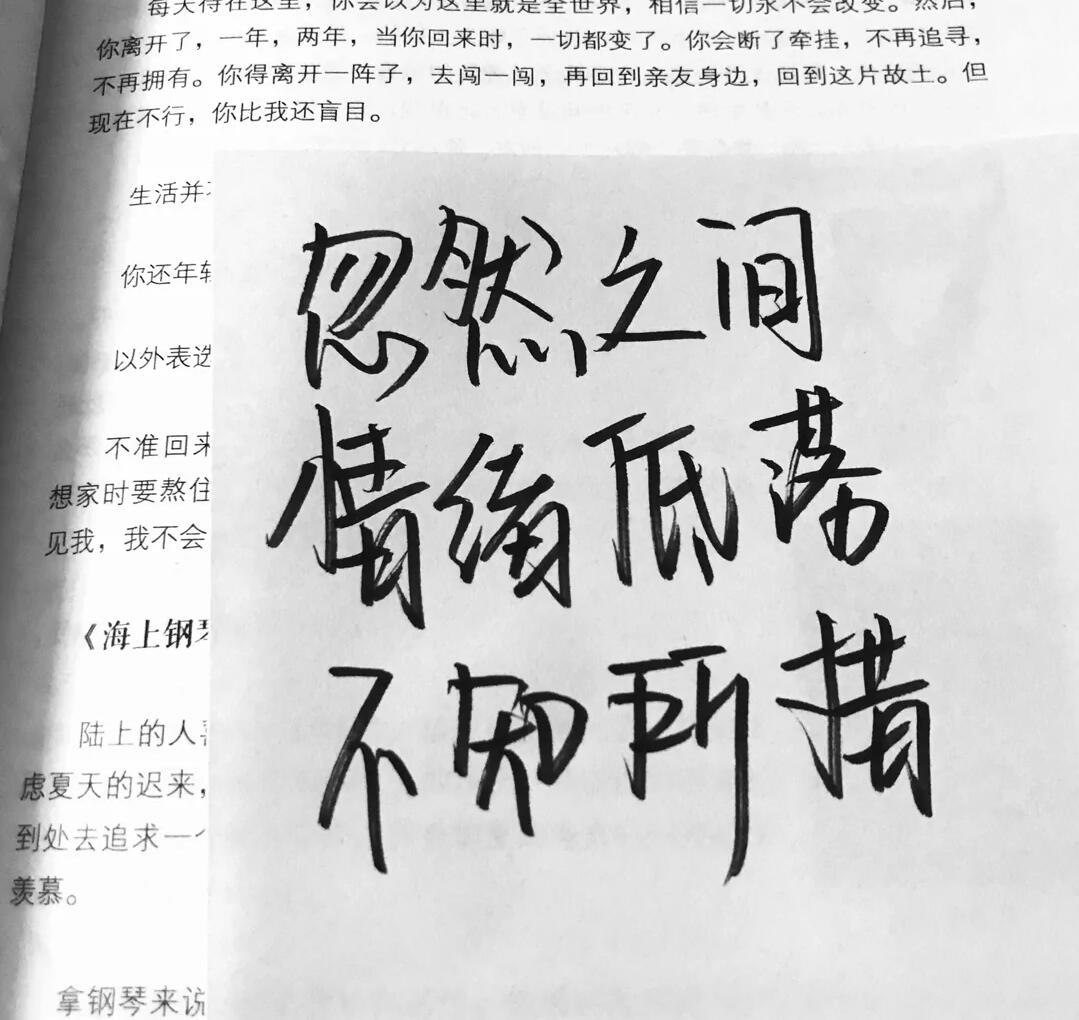 每天待在这里，你会以为这里就是全世界，相信一切永不会改变。然后，
你离开了，一年，两年，当你回来时，一切都变了。你会断了牵挂，不再追寻，
不再拥有。你得离开一阵子，去闯一闯，再回到亲友身边，回到这片故土。但
现在不行，你比我还盲目。
生活并
你还年轻
以外表选
不准回来
想家时要熬住
见我，我不会
《海上钢琴
陆上的人喜
虑夏天的迟来，
到处去追求一个
羡慕。
拿钢琴来说
忽然之间
情绪低落
不知所措